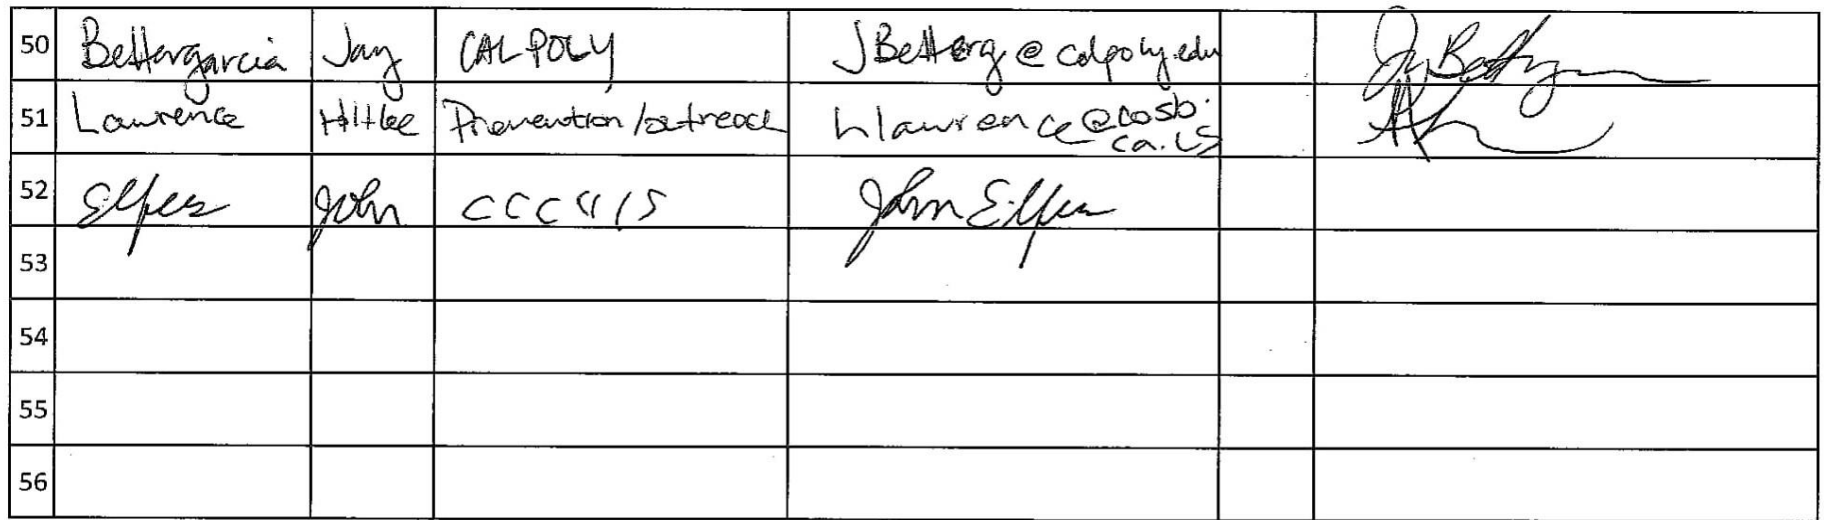 50 Bettergarcia Jay CAL POLY JBetterg@calpoly.edu
51 Lawrence Prevention/outreach hlawrence@cosb.
ca.us
52 Elfers John John Elfers
53
54
55
56